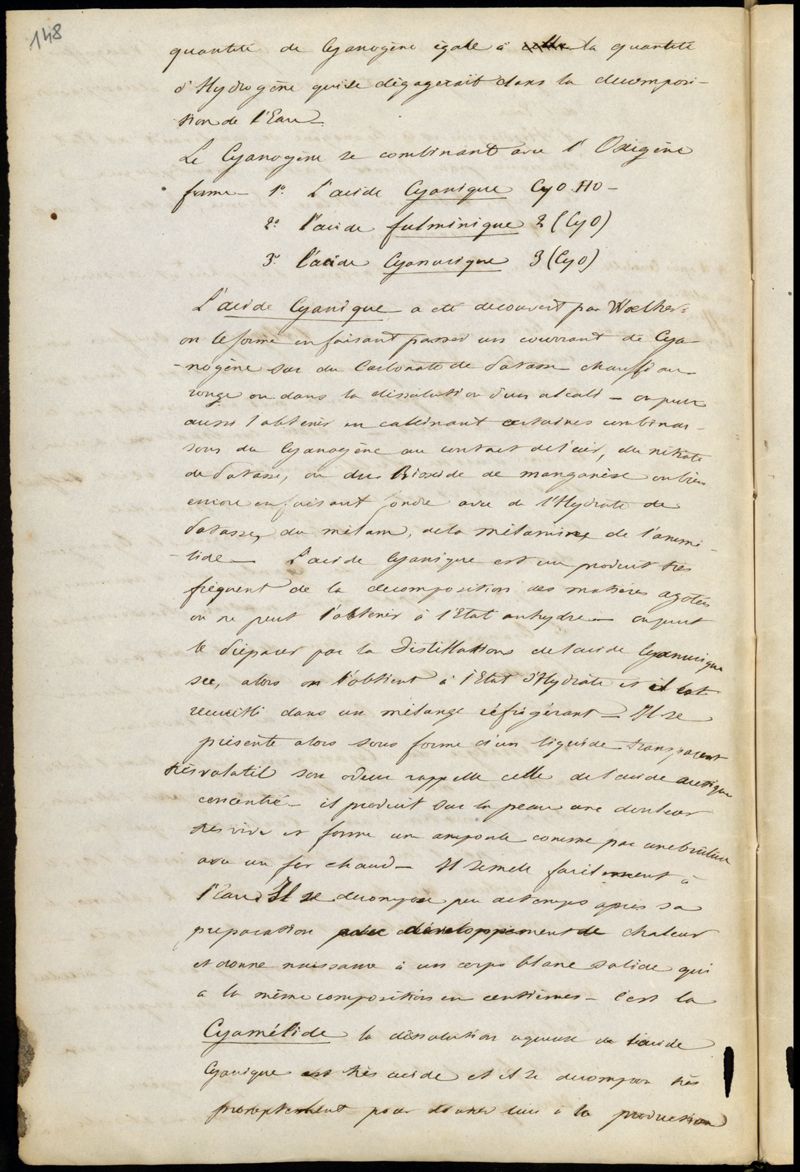 148
quantité de Cyanogène égale à celle la quantité
d'Hydrogène qui se dégagerait dans la décomposi-
tion de l'Eau
Le Cyanogène se combinant avec l'Oxigène
forme 1º L'acide Cyanique CyO HO -
2º l'acide fulminique 2 (CyO)
3º l'acide Cyanurique 3 (CyO)
L'acide Cyanique a été découvert par Woelher
on le forme en faisant passer un courrant de Cya-
-nogène sur du Carbonate de Potasse chauffé au
rouge ou dans la dissolution d'un alcali - on peut
aussi l'obtenir en calcinant certaines combinai-
sons du Cyanogène au contact de l'air, du nitrate
de Potasse, ou du Bioxide de manganèse ou bien
encore en faisant fondre avec de l'Hydrate de
Potasse, du mélam, de la mélamine, de l'amme-
-lide - L'acide Cyanique est un produit très
fréquent de la décomposition des matières azotées
on ne peut l'obtenir à l'Etat anhydre - on peut
le préparer par la Distillation de l'acide Cyanurique
sec, alors on l'obtient à l'Etat d'Hydrate et il est
recueilli dans un mélange réfrigérant - Il se
présente alors sous forme d'un liquide transparent
très volatil son odeur rappelle celle de l'acide acétique
concentré - il produit sur la peau une douleur
très vive et forme une ampoule comme par une brûlure
avec un fer chaud - Il se mêle facilement à
l'Eau Il se décompose peu de temps après sa
préparation avec développement de chaleur
et donne naissance à un corps blanc solide qui
a la même composition en centièmes - c'est la
Cyamélide la dissolution aqueuse de l'acide
Cyanique est très acide et il se décompose très
promptement pour donner lieu à la production